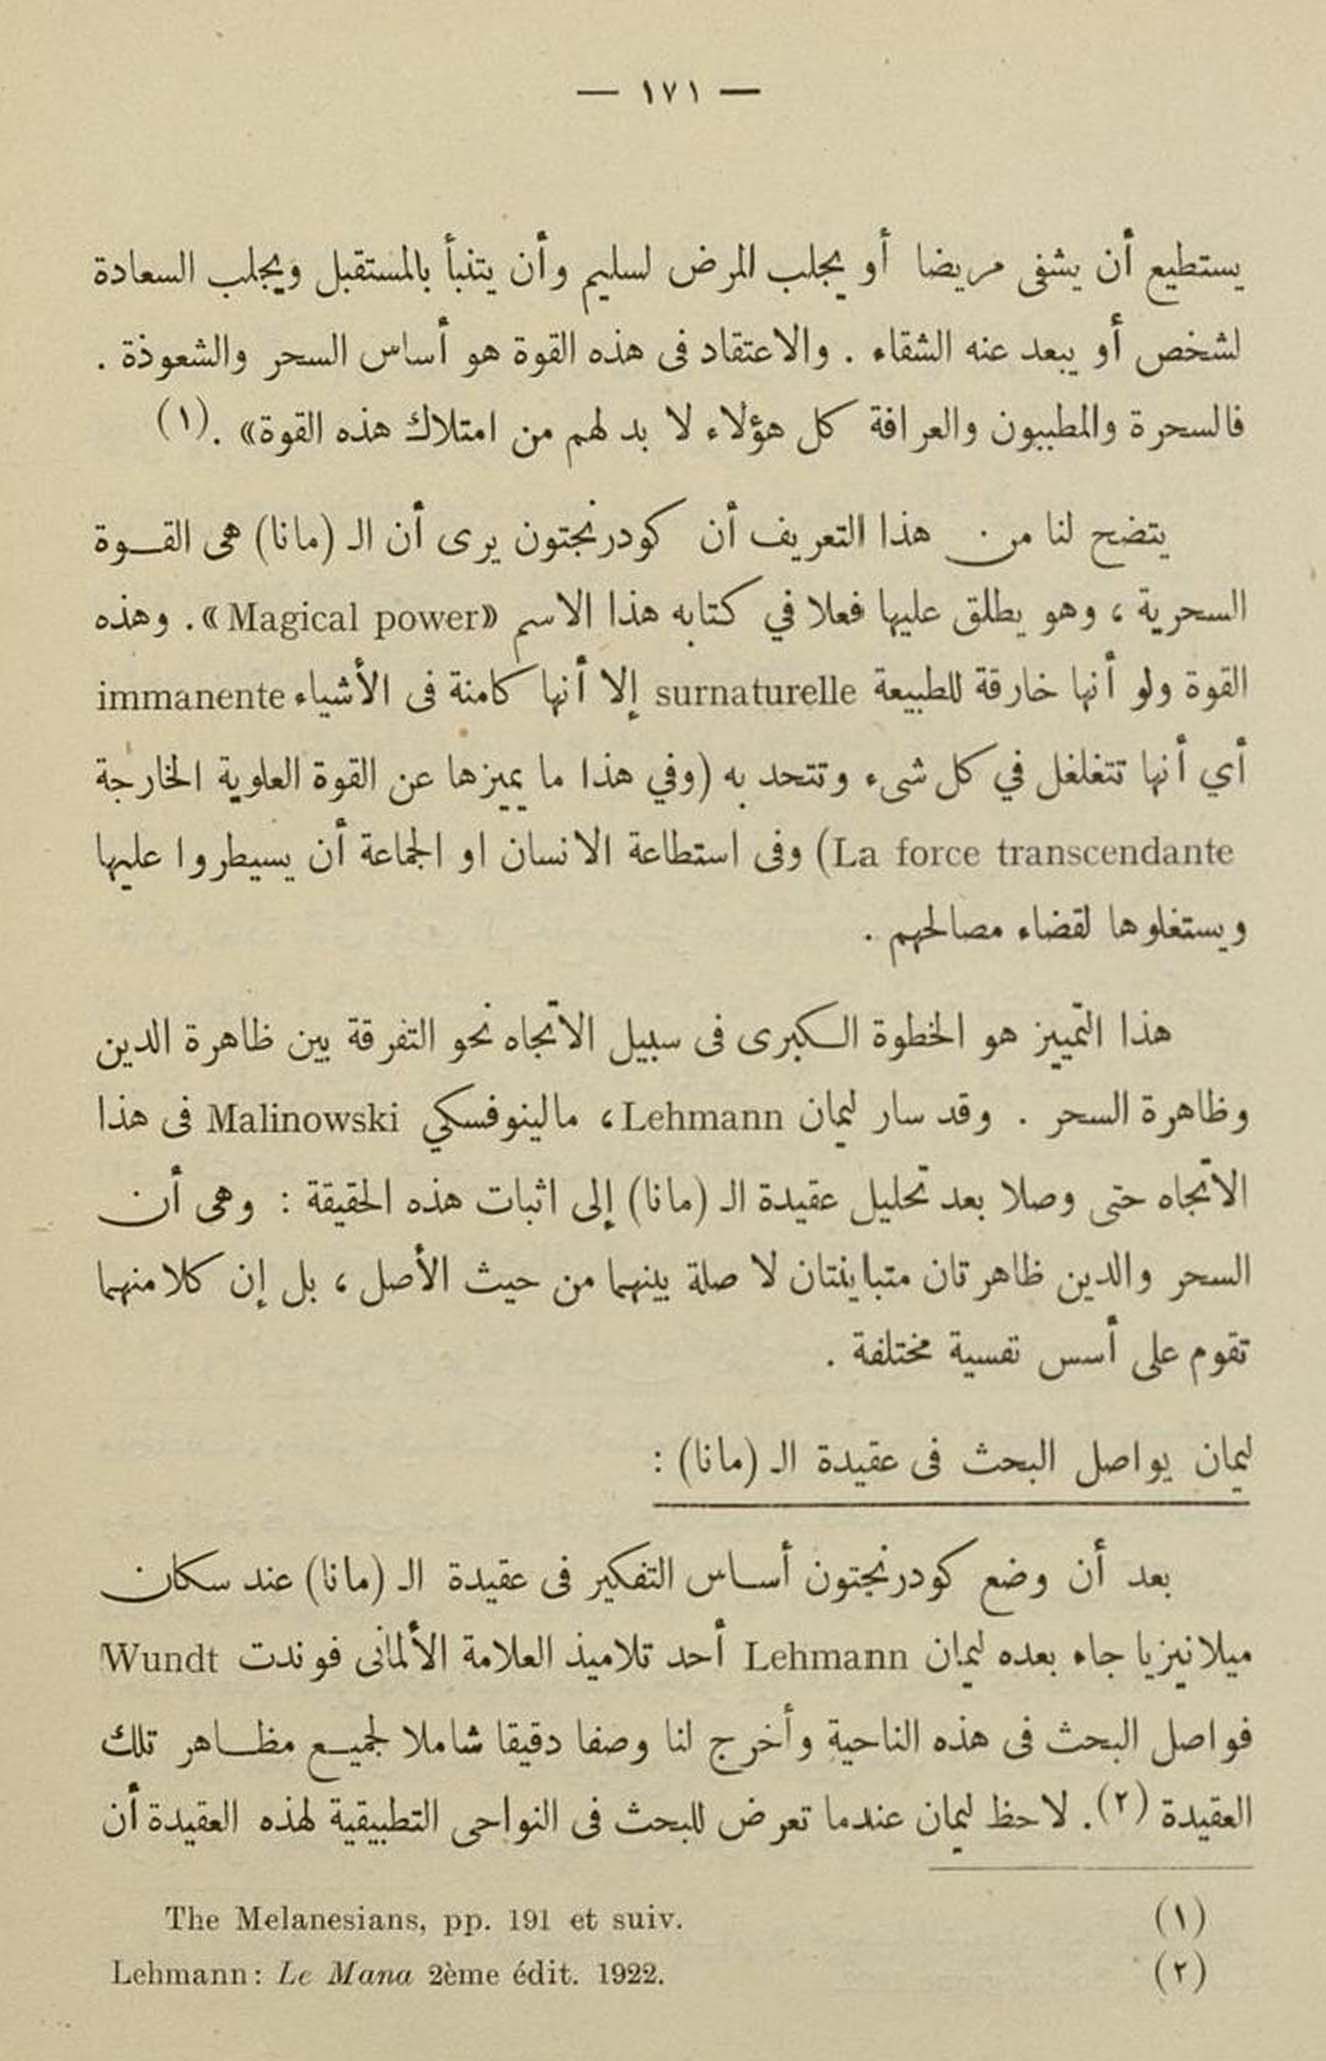 — ١٧١ —
يستطيع أن يشفى مريضا أو يجلب المرض لسليم وأن يتنبأ بالمستقبل ويجلب السعادة
لشخص أو يبعد عنه الشقاء . والاعتقاد فى هذه القوة هو أساس السحر والشعوذة .
فالسحرة والمطببون والعرافة كل هؤلاء لا بد لهم من امتلاك هذه القوة» .(١)
يتضح لنا من هذا التعريف أن كودرنجتون يرى أن الـ (مانا) هى القـوة
السحرية ، وهو يطلق عليها فعلا في كتابه هذا الاسم «Magical power» . وهذه
القوة ولو أنها خارقة للطبيعة surnaturelle إلا أنها كامنة فى الأشياء immanente
أي أنها تتغلغل في كل شىء وتتحد به (وفي هذا ما يميزها عن القوة العلوية الخارجة
La force transcendante) وفى استطاعة الانسان او الجماعة أن يسيطروا عليها
ويستغلوها لقضاء مصالحهم .
هذا التمييز هو الخطوة الكبرى فى سبيل الاتجاه نحو التفرقة بين ظاهرة الدين
وظاهرة السحر . وقد سار ليمان Lehmann ، مالينوفسكي Malinowski فى هذا
الاتجاه حتى وصلا بعد تحليل عقيدة الـ (مانا) إلى اثبات هذه الحقيقة : وهى أن
السحر والدين ظاهرتان متباينتان لا صلة بينهما من حيث الأصل ، بل إن كلا منهما
تقوم على أسس نفسية مختلفة .
ليمان يواصل البحث فى عقيدة الـ (مانا) :
بعد أن وضع كودرنجتون أساس التفكير فى عقيدة الـ (مانا) عند سكان
ميلانيزيا جاء بعده ليمان Lehmann أحد تلاميذ العلامة الألمانى فوندت Wundt
فواصل البحث فى هذه الناحية وأخرج لنا وصفا دقيقا شاملا لجميع مظاهر تلك
العقيدة (٢). لاحظ ليمان عندما تعرض للبحث فى النواحى التطبيقية لهذه العقيدة أن
(١) The Melanesians, pp. 191 et suiv.
(٢) Lehmann: Le Mana 2ème édit. 1922.